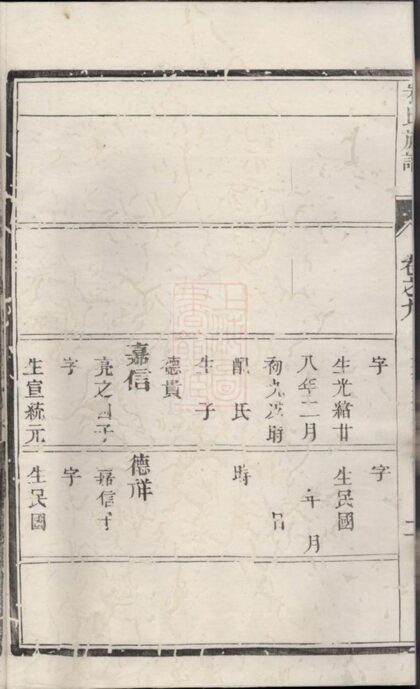 氏族譜
卷之九
字
生光緒廿
八年二月
初九 時
配 氏
生 子
德貴
嘉信
亮之 子
字
生宣統元
字
生民國
年 月
日
時
德祥
嘉信子
字
生民國
上海圖書館藏